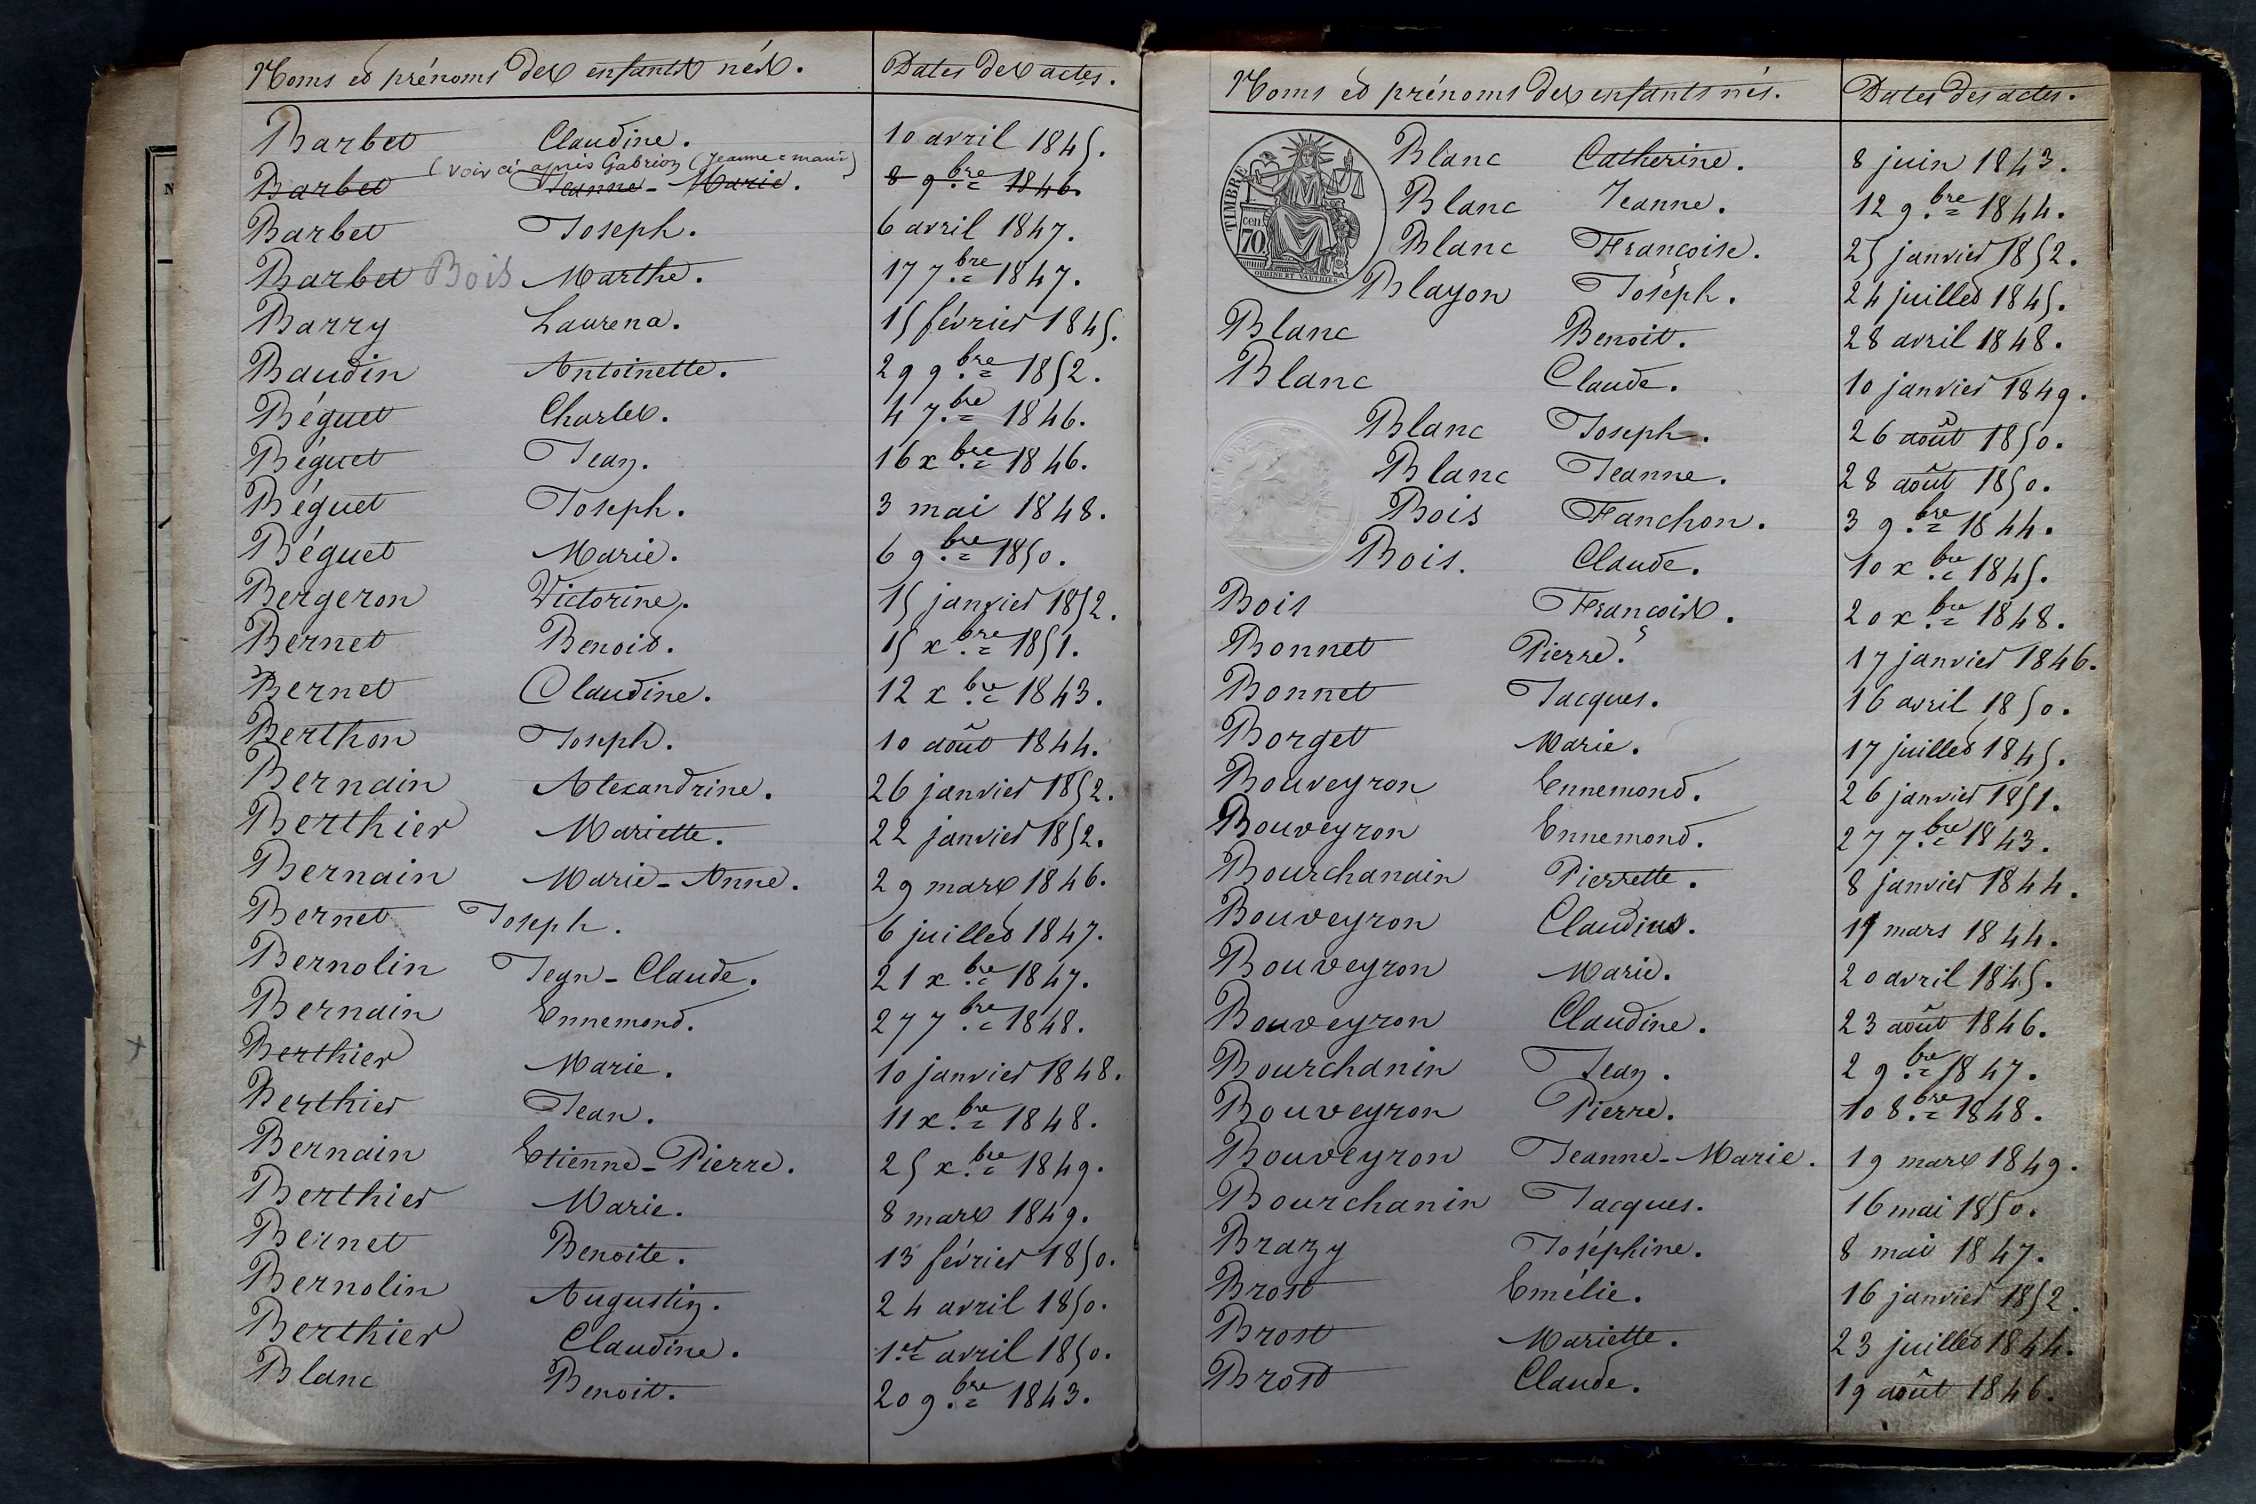 Noms et prénoms des enfants nés. Dates des actes.
Barbet Claudine. 10 avril 1845.
(voir ci-après Gabrion (Jeanne-marie)
Barbet Jeanne-Marie. 8 9.bre 1846.
Barbet Joseph. 6 avril 1847.
Barbet Bois Marthe. 17 7.bre 1847.
Barry Laurena. 15 février 1845.
Baudin Antoinette. 29 9.bre 1852.
Béguet Charles. 4 7.bre 1846.
Béguet Jean. 16 x.bre 1846.
Béguet Joseph. 3 mai 1848.
Béguet Marie. 6 9.bre 1850.
Bergeron Victorine. 15 janvier 1852.
Bernet Benoit. 15 x.bre 1851.
Bernet Claudine. 12 x.bre 1843.
Berthon Joseph. 10 août 1844.
Bernain Alexandrine. 26 janvier 1852.
Berthier Mariette. 22 janvier 1852.
Bernain Marie-Anne. 29 mars 1846.
Bernet Joseph. 6 juillet 1847.
Bernolin Jean-Claude. 21 x.bre 1847.
Bernain Ennemond. 27 7.bre 1848.
Berthier Marie. 10 janvier 1848.
Berthier Jean. 11 x.bre 1848.
Bernain Etienne-Pierre. 25 x.bre 1849.
Berthier Marie. 8 mars 1849.
Bernet Benoite. 13 février 1850.
Bernolin Augustin. 24 avril 1850.
Berthier Claudine. 1.er avril 1850.
Blanc Benoit. 20 9.bre 1843.
Noms et prénoms des enfants nés. Dates des actes.
TIMBRE
70 cen
OUDINÉ ET VAUTHIER
Blanc Catherine. 8 juin 1843.
Blanc Jeanne. 12 9.bre 1844.
Blanc Françoise. 25 janvier 1852.
Blayon Joseph. 24 juillet 1845.
Blanc Benoit. 28 avril 1848.
Blanc Claude. 10 janvier 1849.
Blanc Joseph. 26 août 1850.
Blanc Jeanne. 28 août 1850.
Bois Fanchon. 3 9.bre 1844.
Bois. Claude. 10 x.bre 1845.
Bois François. 20 x.bre 1848.
Bonnet Pierre. 17 janvier 1846.
Bonnet Jacques. 16 avril 1850.
Borget Marie. 17 juillet 1845.
Bouveyron Ennemond. 26 janvier 1851.
Bouveyron Ennemond. 27 7.bre 1843.
Bourchanain Pierrette. 8 janvier 1844.
Bouveyron Claudius. mars 1844.
Bouveyron Marie. 20 avril 1845.
Bouveyron Claudine. 23 août 1846.
Bourchanin Jean. 2 9.bre 1847.
Bouveyron Pierre. 10 8.bre 1848.
Bouveyron Jeanne-Marie. 19 mars 1849.
Bourchanin Jacques. 16 mai 1850.
Brazy Joséphine. 8 mai 1847.
Brost Emélie. 16 janvier 1852.
Brost Mariette. 23 juillet 1844.
Brost Claude. 19 août 1846.